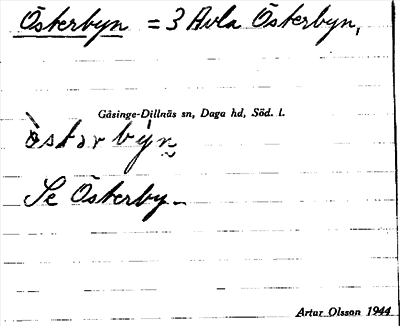 Österbyn = 3 Avla Österbyn,
Gåsinge-Dillnäs sn, Daga hd, Söd. l.
òstarbýn̰
Se Österby.
Artur Olsson 1944